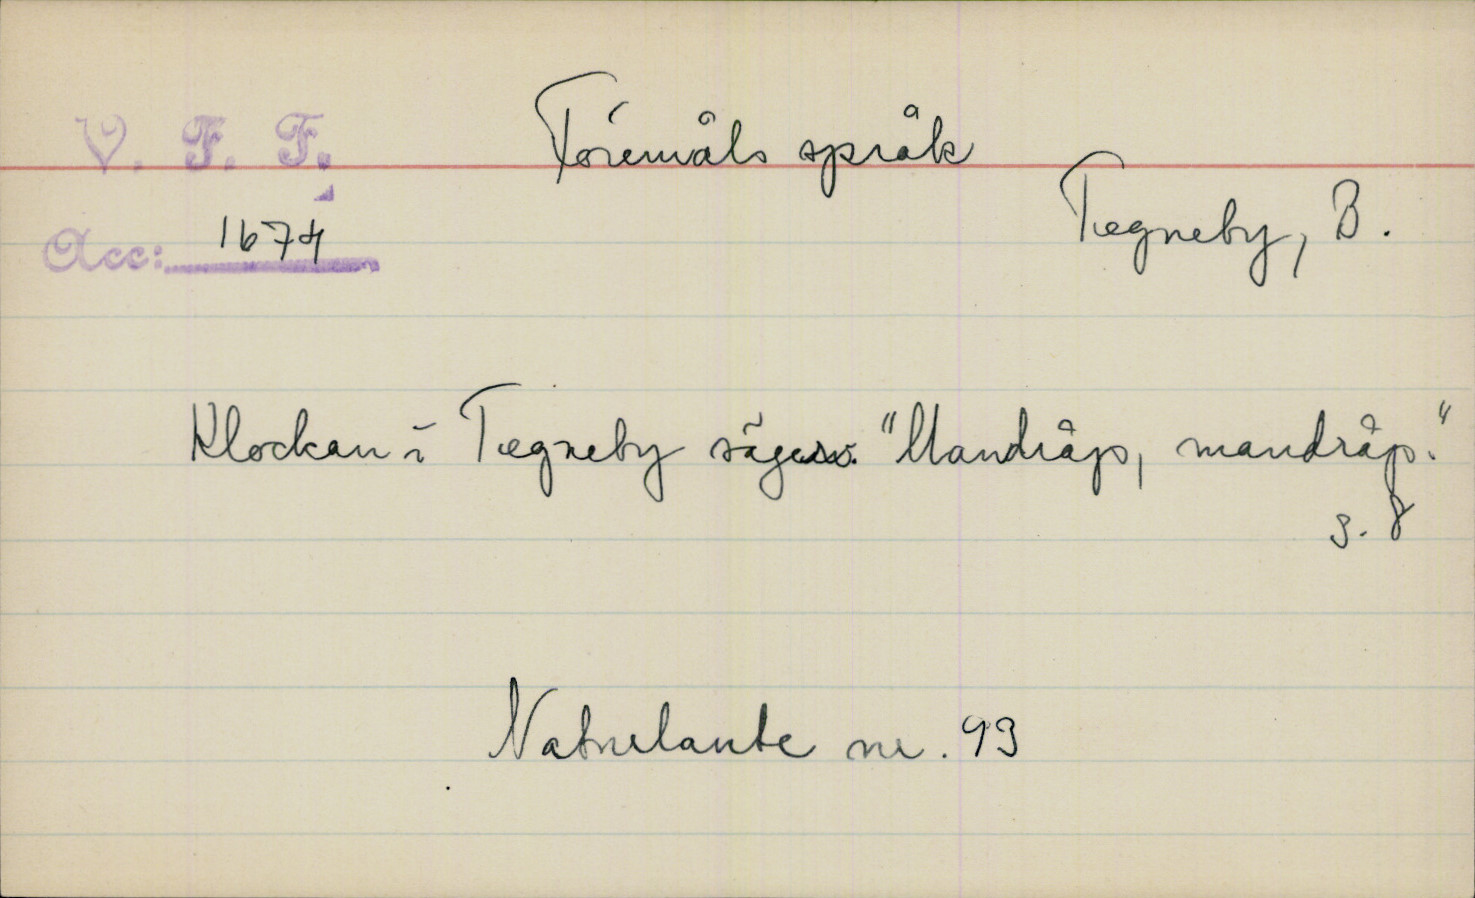 V. F. F.
Föremåls språk
Tegneby, B.
Acc: 1674
Klockan i Tegneby säger: "Mandråp, mandråp."
s. 8
Naturlante nr. 93